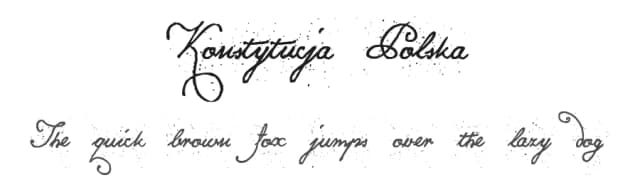 Konstytucja Polska
The quick brown fox jumps over the lazy dog